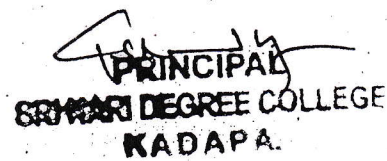 PRINCIPAL
SRI HARI DEGREE COLLEGE
KADAPA.